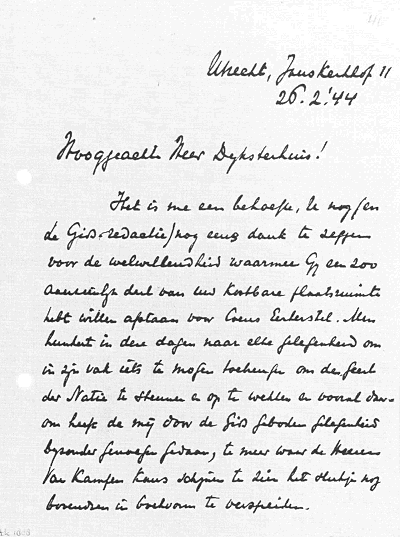 Utrecht, Janskerkhof 11
26.2.'44
Hooggeachte Heer Dijksterhuis!
Het is me een behoefte, U nog (en
de Gids-redactie) nog eens dank te zeggen
voor de welwillendheid waarmee Gij een zoo
aanzienlijk deel van uw kostbare plaatsruimte
hebt willen afstaan voor Coens Eerherstel. Men
hunkert in deze dagen naar elke gelegenheid om
in zijn vak iets te mogen toebrengen om den geest
der Natie te steunen en op te wekken en vooral daar-
om heeft de mij door de Gids geboden gelegenheid
bijzonder genoegen gedaan, te meer waar de Heeren
Van Kampen kans schijnen te zien het stukje nog
bovendien in boekvorm te verspreiden.